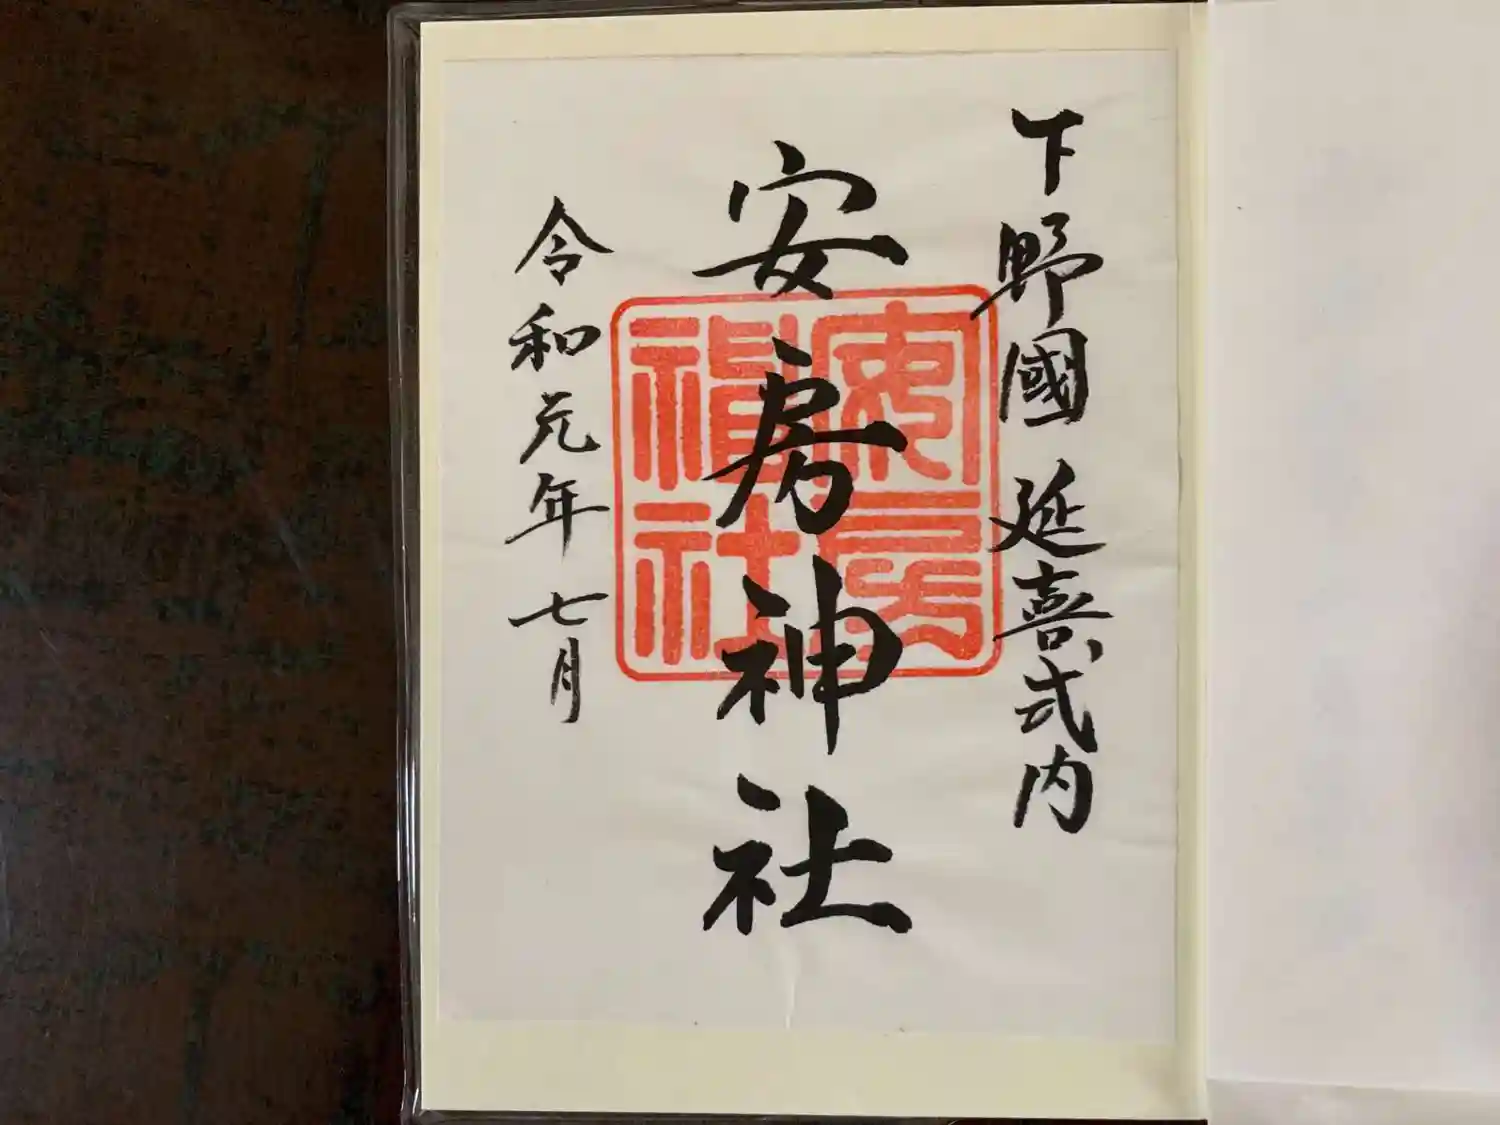 下野國 延喜式内
安房神社
安房神社
令和元年七月